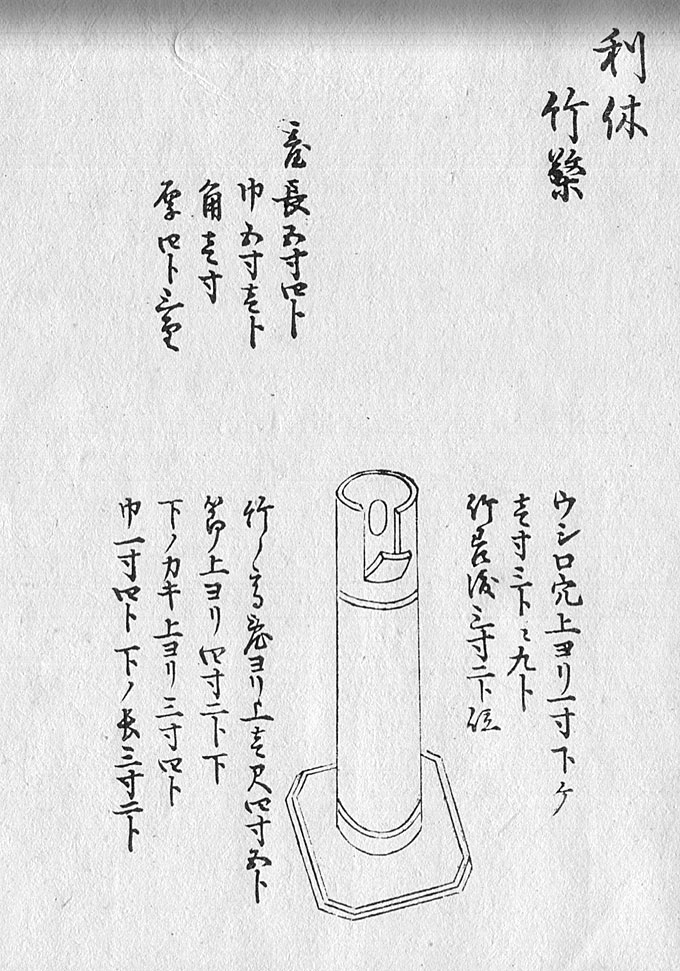 利休
竹檠
臺 長五寸四ト
巾五寸壱ト
角壱寸
厚四ト三
ウシロ穴上ヨリ一寸下ケ
壱寸三トニ九ト
竹 三寸二ト
竹ノ高臺ヨリ上壱尺四寸五ト
節ノ上ヨリ四寸二ト下
下ノカキ上ヨリ三寸四ト
巾一寸四ト下ノ長三寸二ト